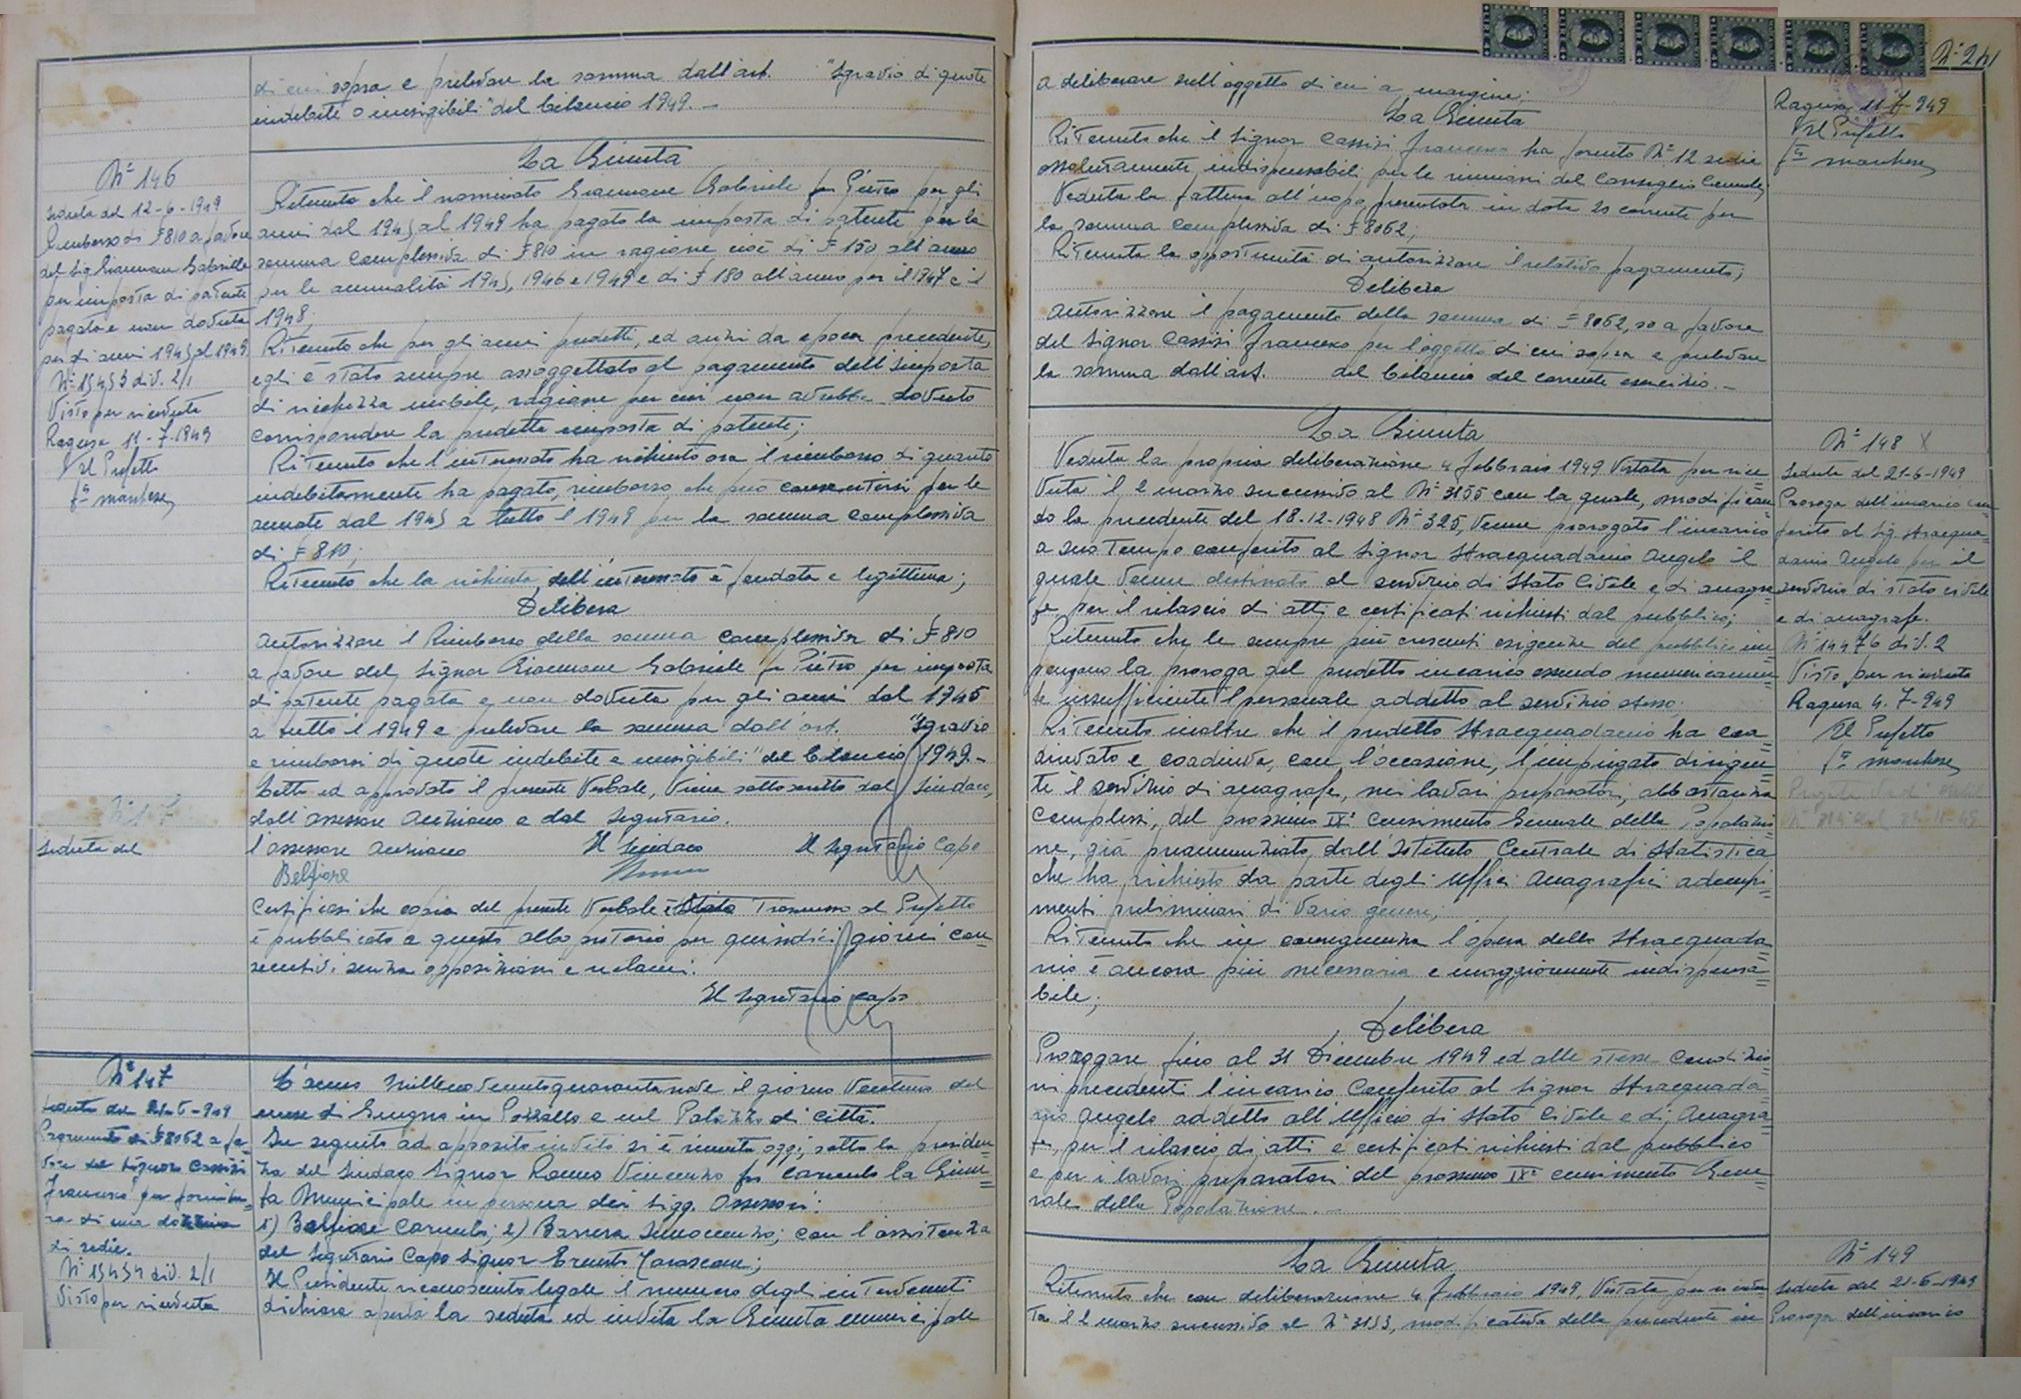 di cui sopra e prelevare la somma dall'art. "Sgravio di quote
indebite o inesigibili" del bilancio 1949. -
N° 146
Seduta del 12-6-1949
Rimborso di £ 810 a favore
del Sig. Giannone Gabriele
per imposta di patente
pagata e non dovuta
per gli anni 1945 al 1949
N° 15453 div. 2/1
Visto per ricevuta
Ragusa 11-7-1949
Il Prefetto
f° Marchese
La Giunta
Ritenuto che il nominato Giannone Gabriele fu Pietro per gli
anni dal 1945 al 1949 ha pagato la imposta di patente per la
somma complessiva di £ 810 in ragione cioè di £ 150 all'anno
per le annualità 1945, 1946 e 1949 e di £ 180 all'anno per il 1947 e il
1948;
Ritenuto che per gli anni predetti, ed anzi da epoca precedente,
egli è stato sempre assoggettato al pagamento dell'imposta
di ricchezza mobile, ragione per cui non avrebbe dovuto
corrispondere la predetta imposta di patente;
Ritenuto che l'interessato ha richiesto ora il rimborso di quanto
indebitamente ha pagato, rimborso che può consentirsi per le
annate dal 1945 a tutto il 1949 per la somma complessiva
di £ 810;
Ritenuto che la richiesta dell'interessato è fondata e legittima;
Delibera
Autorizzare il Rimborso della somma complessiva di £ 810
a favore del Signor Giannone Gabriele fu Pietro per imposta
di patente pagata e non dovuta per gli anni dal 1945
a tutto il 1949 e prelevare la somma dall'art. "Sgravio
e rimborsi di quote indebite e inesigibili" del bilancio 1949. -
Letto ed approvato il presente Verbale, viene sottoscritto dal Sindaco,
dall'assessore Anziano e dal Segretario.
N° 147
Seduta del
L'assessore Anziano Il Sindaco Il Segretario Capo
Belfiore
Certificasi che copia del presente Verbale è stata Trasmessa al Prefetto
e pubblicata a questo albo pretorio per quindici giorni con=
secutivi senza opposizioni e reclami.
Il Segretario Capo
N° 147
Seduta del 21-6-949
Pagamento di £ 8062 a fa=
vore del Signor Cassisi
Francesco per fornitu=
ra di una dozzina
di sedie.
N° 15454 div. 2/1
Visto per ricevuta
L'anno Millenovecentoquarantanove il giorno Ventuno del
mese di Giugno in Pozzallo e nel Palazzo di città.
In seguito ad apposito invito si è riunita oggi, sotto la presiden=
za del Sindaco Signor Vincenzo fu Carmelo la Giun=
ta Municipale in persona dei Sigg. Assessori:
1) Belfiore Carmelo; 2) Barrera Innocenzo; con l'assistenza
del Segretario Capo Signor Ernesto
Il Presidente riconosciuto legale il numero degli intervenuti
dichiara aperta la seduta ed invita la Giunta municipale
N° 241
a deliberare sull'oggetto di cui a margine;
Ragusa 11-7-949
Il Prefetto
f° Marchese
La Giunta
Ritenuto che il Signor Cassisi Francesco ha fornito N° 12 sedie
assolutamente indispensabili per le riunioni del Consiglio Comunale;
Veduta la fattura all'uopo presentata in data 20 corrente per
la somma complessiva di £ 8062;
Ritenuta la opportunità di autorizzare il relativo pagamento;
Delibera
Autorizzare il pagamento della somma di £ 8062,50 a favore
del Signor Cassisi Francesco per l'oggetto di cui sopra e prelevare
la somma dall'art. del bilancio del corrente esercizio. -
N° 148 X
Seduta del 21-6-1949
Proroga dell'incarico con=
ferito al Sig. Stracqua=
danio Angelo per il
servizio di stato civile
e di anagrafe.
N° 14476 div. 2
Visto per ricevuta
Ragusa 4-7-949
Il Prefetto
f° Marchese
La Giunta
Veduta la propria deliberazione 4 febbraio 1949 Vistata per rice=
vuta il 2 marzo successivo al N° 3155 con la quale, modifican=
do la precedente del 18-12-1948 N° 325, venne prorogato l'incarico
a suo tempo conferito al Signor Stracquadanio Angelo il
quale venne destinato al servizio di Stato Civile e di anagra=
fe per il rilascio di atti e certificati richiesti dal pubblico;
Ritenuto che le sempre più crescenti esigenze del pubblico im=
pongono la proroga del predetto incarico essendo numericamen=
te insufficiente il personale addetto al servizio stesso;
Ritenuto inoltre che il predetto Stracquadanio ha coa=
diuvato e coadiuva, con l'occasione, l'impiegato dirigen=
te il servizio di anagrafe, nei lavori preparatori, abbastanza
complessi, del prossimo IX° Censimento Generale della Popolazio=
ne, già preannunziato dall'Istituto Centrale di Statistica
che ha richiesto da parte degli Uffici Anagrafici adempi=
menti preliminari di vario genere;
Ritenuto che in conseguenza l'opera dello Stracquada=
nio è ancora più necessaria e maggiormente indispensa=
bile;
Delibera
Prorogare fino al 31 Dicembre 1949 ed alle stesse condizio=
ni precedenti l'incarico conferito al Signor Stracquada=
nio Angelo addetto all'Ufficio di Stato Civile e di Anagra=
fe, per il rilascio di atti e certificati richiesti dal pubblico
e per i lavori preparatori del prossimo IX° censimento Gene=
rale della Popolazione. -
N° 149
Seduta del 21-6-1949
Proroga dell'incarico
La Giunta
Ritenuto che con deliberazione 4 febbraio 1949, Vistata per ricevu=
ta il 2 marzo successivo al N° 3153, modificativa della precedente in